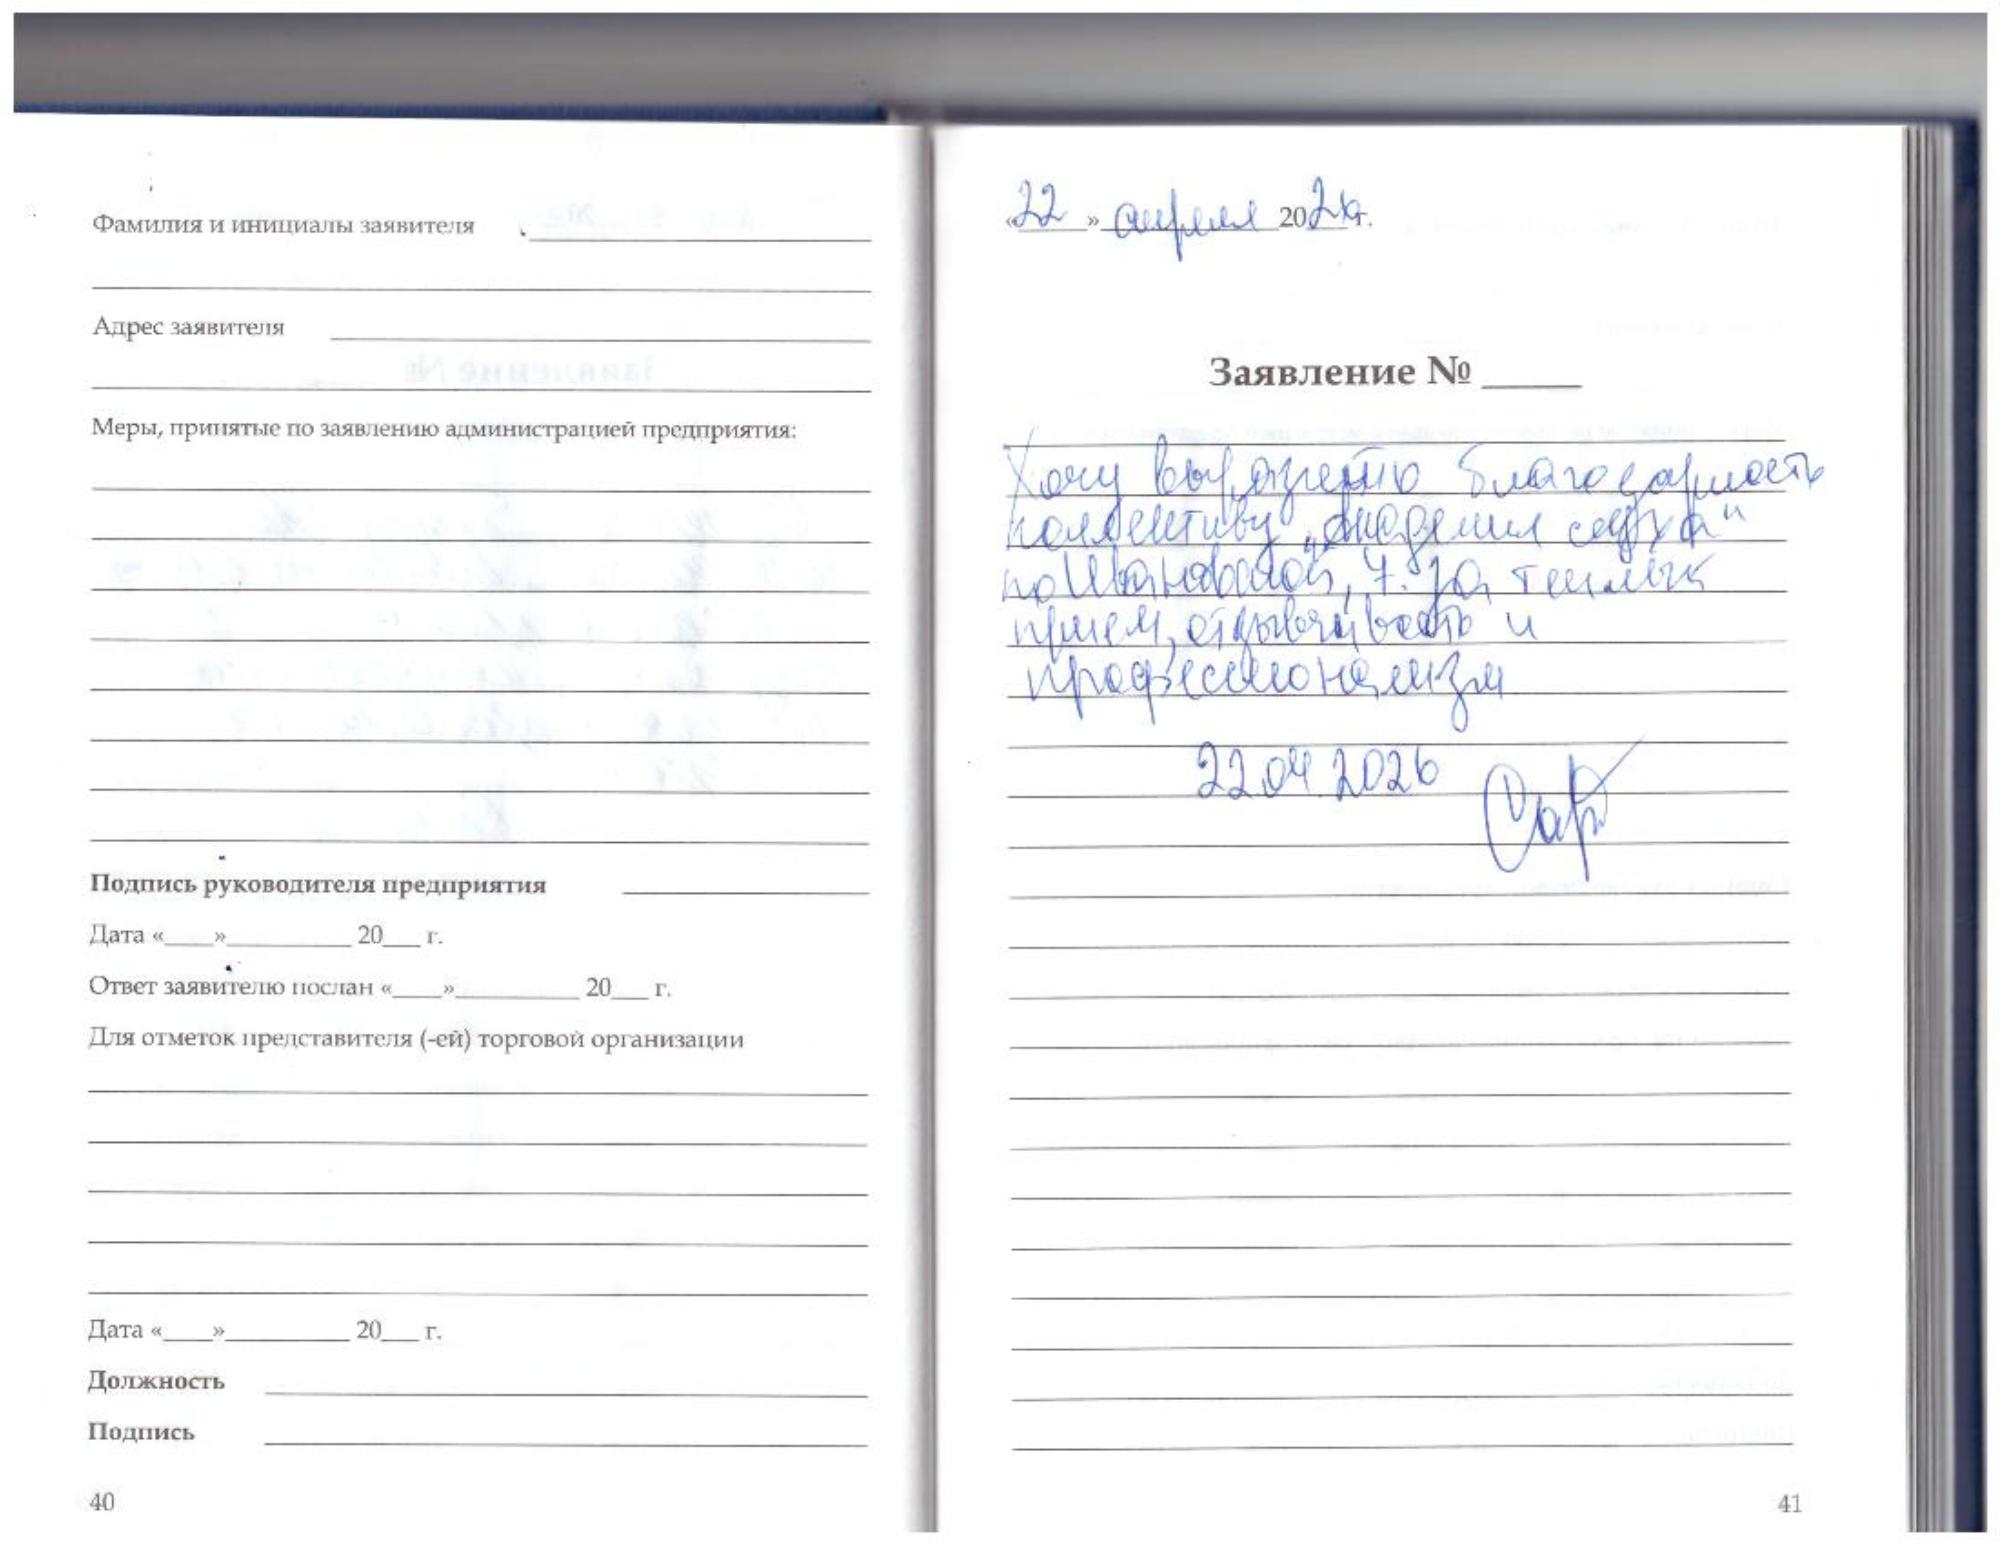 Фамилия и инициалы заявителя
Адрес заявителя
Меры, принятые по заявлению администрацией предприятия:
Подпись руководителя предприятия
Дата «____»__________ 20___ г.
Ответ заявителю послан «____»__________ 20___ г.
Для отметок представителя (-ей) торговой организации
Дата «____»__________ 20___ г.
Должность
Подпись
40
«22» апреля 2026г.
Заявление № _____
Хочу выразить благодарность
коллективу „Академия слуха"
по 7. за теплый
прием, отзывчивость и
профессионализм
22.04.2026
41